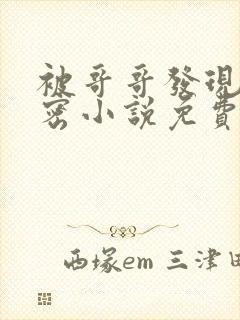 被哥哥發現
密小說免費
西塚em 三津田